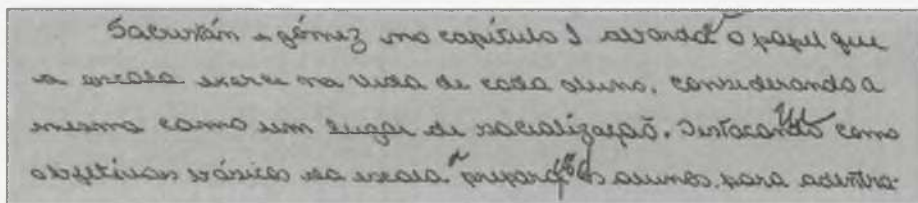 Sacristán e gómez no capítulo I aborda o papel que
a escola exerce na vida de cada aluno, considerando a
mesma como um lugar de socialização. Destacando como
objetivos básicos da escola preparar os alunos para adentra-